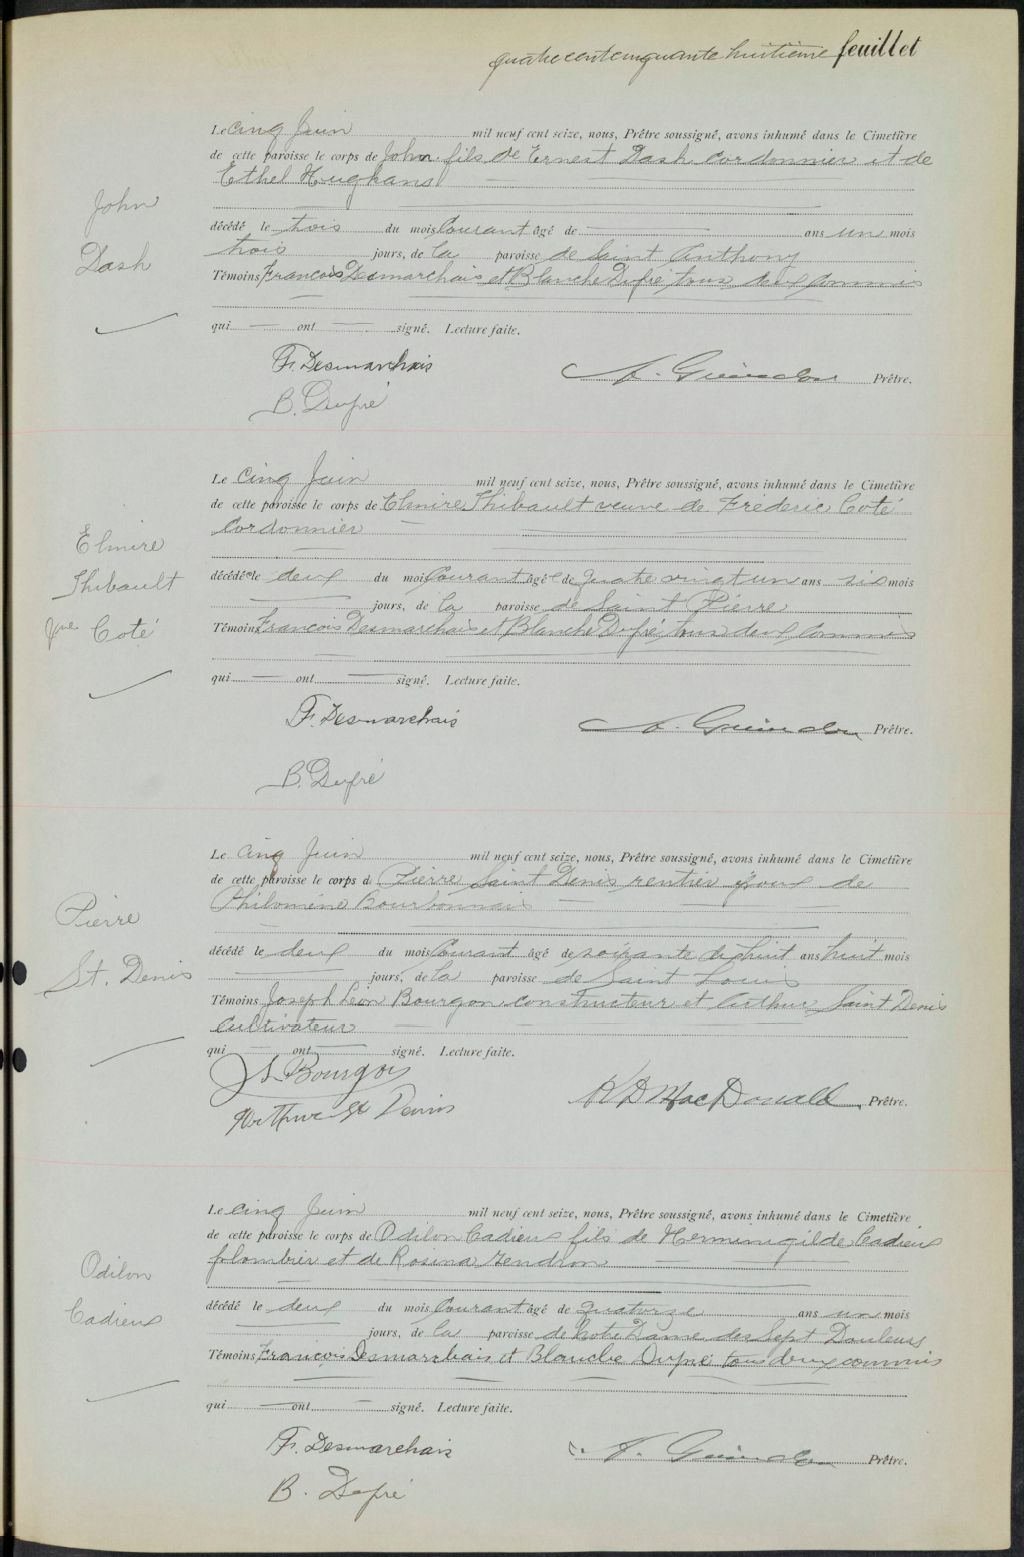 quatre cent cinquante huitième feuillet
Le cinq Juin mil neuf cent seize, nous, Prêtre soussigné, avons inhumé dans le Cimetière
de cette paroisse le corps de John fils de Ernest Dash cordonnier et de
Ethel Hughans
John
Dash
décédé le trois du mois courant âgé de ans un mois
trois jours, de la paroisse de Saint Anthony
Témoins François Desmarchais et Blanche Dufré tous deux commis
qui ont signé. Lecture faite.
F. Desmarchais
A. Guindon Prêtre.
B. Dufré
Le cinq Juin mil neuf cent seize, nous, Prêtre soussigné, avons inhumé dans le Cimetière
de cette paroisse le corps de Elmire Thibault veuve de Fréderic Coté
cordonnier
Elmire
Thibault
Coté
décédée le deux du mois courant âgée de quatre vingt un ans six mois
jours, de la paroisse de Saint Pierre
Témoins François Desmarchais et Blanche Dufré tous deux commis
qui ont signé. Lecture faite.
F. Desmarchais
A. Guindon Prêtre.
B. Dufré
Le cinq Juin mil neuf cent seize, nous, Prêtre soussigné, avons inhumé dans le Cimetière
de cette paroisse le corps de Pierre Saint Denis rentier époux de
Philomène Bourbonnais
Pierre
St. Denis
décédé le deux du mois courant âgé de soixante dix huit ans huit mois
jours, de la paroisse de Saint Louis
Témoins Joseph Léon Bourgon constructeur et Arthur Saint Denis
cultivateur
qui ont signé. Lecture faite.
J L Bourgon
MacDonald Prêtre.
Arthur St Denis
Le cinq Juin mil neuf cent seize, nous, Prêtre soussigné, avons inhumé dans le Cimetière
de cette paroisse le corps de Odilon Cadieux fils de Herminigilde Cadieux
plombier et de Rosina Gendron
Odilon
Cadieux
décédé le deux du mois courant âgé de quatorze ans un mois
jours, de la paroisse de Notre Dame des Sept Douleurs
Témoins François Desmarchais et Blanche Dufré tous deux commis
qui ont signé. Lecture faite.
F. Desmarchais
A. Guindon Prêtre.
B. Dufré